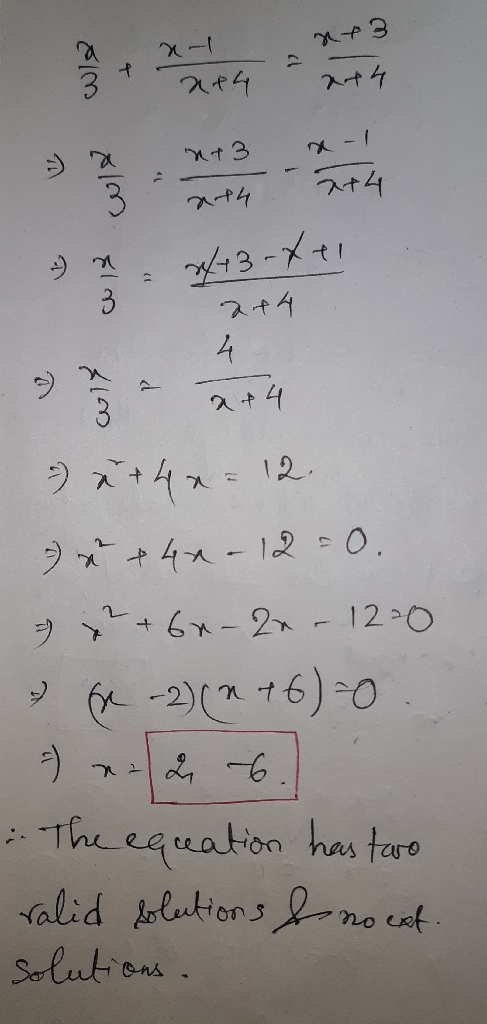 x/3 + (x-1)/(x+4) = (x+3)/(x+4)
⇒ x/3 = (x+3)/(x+4) - (x-1)/(x+4)
⇒ x/3 = (x+3-x+1)/(x+4)
⇒ x/3 = 4/(x+4)
⇒ x²+4x = 12.
⇒ x² + 4x - 12 = 0.
⇒ x² + 6x - 2x - 12 = 0
⇒ (x-2)(x+6) = 0.
⇒ x = 2, -6.
∴ The equation has two
valid solutions & no ext.
solutions.